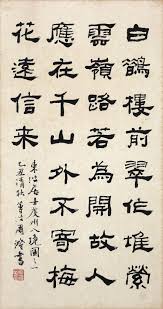 白鵲樓前翠作堆縈
雲嶺路若為開故人
應在千山外不寄梅
花遠信来
東坡居士虔州八境圖之一
乙丑清秋
書